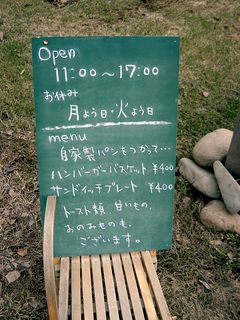 Open
11:00〜17:00
お休み
月よう日・火よう日
menu
自家製パンをつかって…
ハンバーガーバスケット ¥400
サンドイッチプレート ¥400
トースト類、甘いもの、
おのみものも、
ございます。